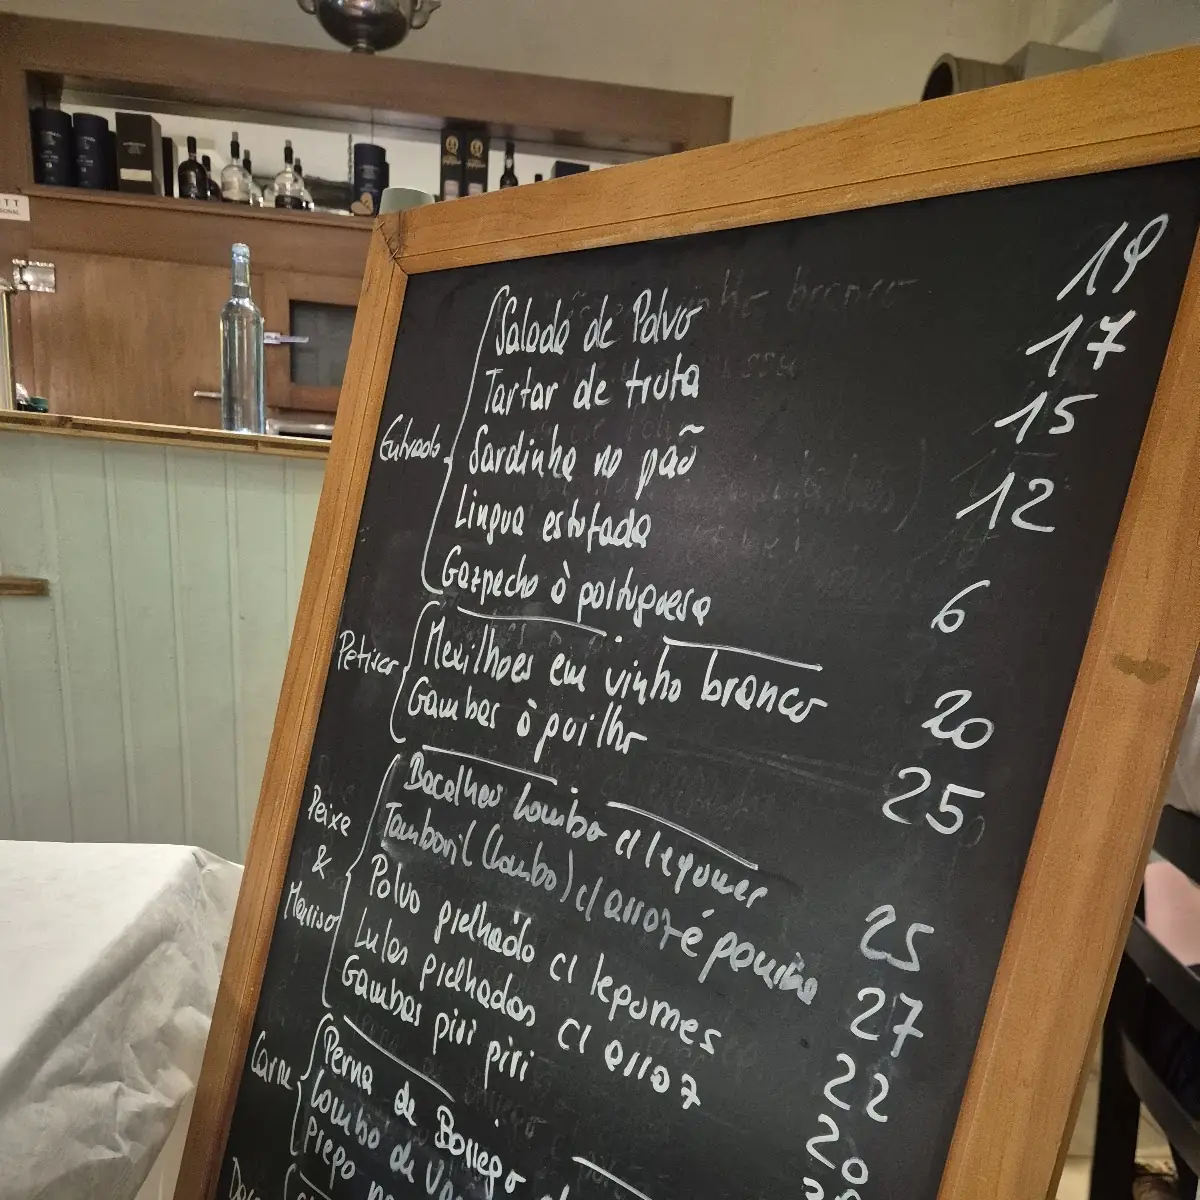 Entrada
Salada de Polvo 19
Tartar de truta 17
Sardinha no pão 15
Lingua estufada 12
Gazpacho à portuguesa 6
Petiscos
Mexilhoes em vinho branco 20
Gambas à guilho 25
Peixe & Marisco
Bacalhau Lombo c/ legumes 25
Tamboril (Lombo) c/ arroz é 27
Polvo grelhado c/ legumes 22
Lulas grelhadas c/ arroz 20
Gambas piri piri
Carne
Perna de Borrego
Lombo de
Prego